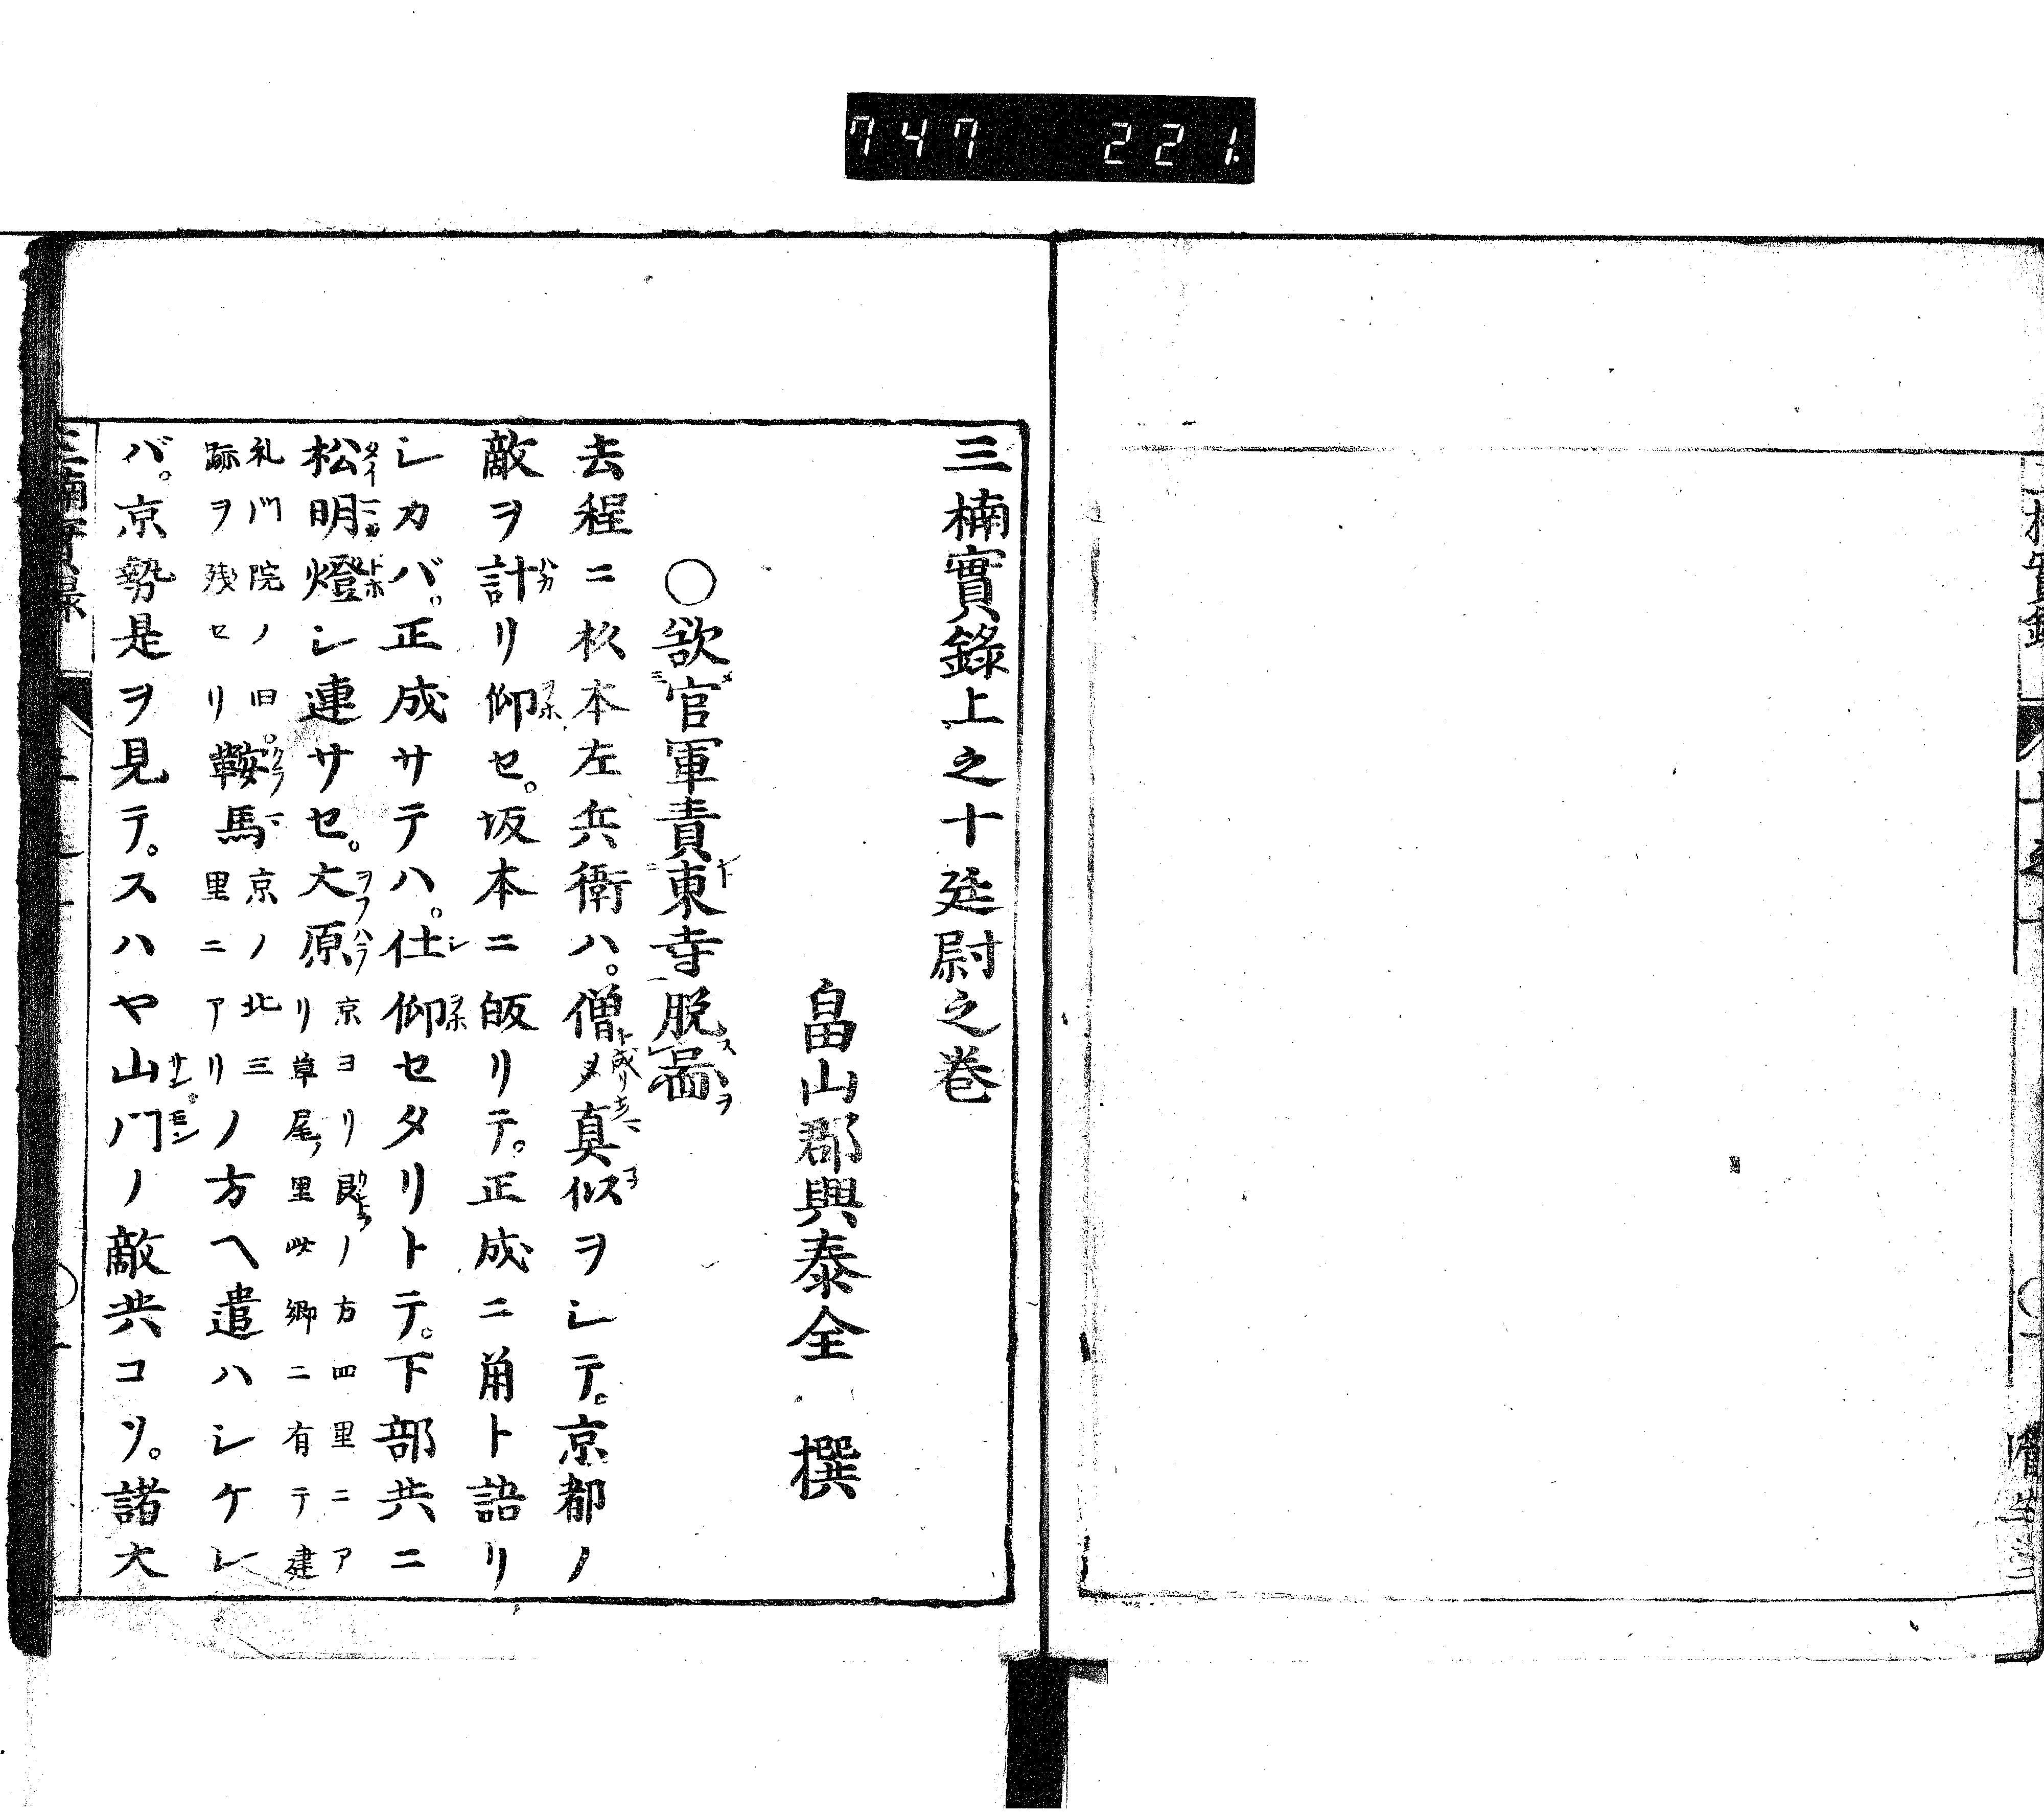 747 221.
三楠實錄上之十廷尉之巻
畠山郡興泰全 撰
○欲官軍責東寺脱圖
去程ニ杦本左兵衛ハ。僧メ真似ヲシテ。京都ノ
敵ヲ計リ仰セ。坂本ニ皈リテ。正成ニ角ト語リ
シカバ。正成サテハ。仕仰セタリトテ。下部共ニ
松明燈シ連サセ。大原
京ヨリ艮ノ方四里ニア
リ草尾里此郷ニ有テ建
礼門院ノ旧
跡ヲ残セリ
鞍馬
京ノ北三
里ニアリ
ノ方ヘ遣ハシケレ
バ。京勢是ヲ見テ。スハヤ山門ノ敵共コソ。諸大
三楠實錄